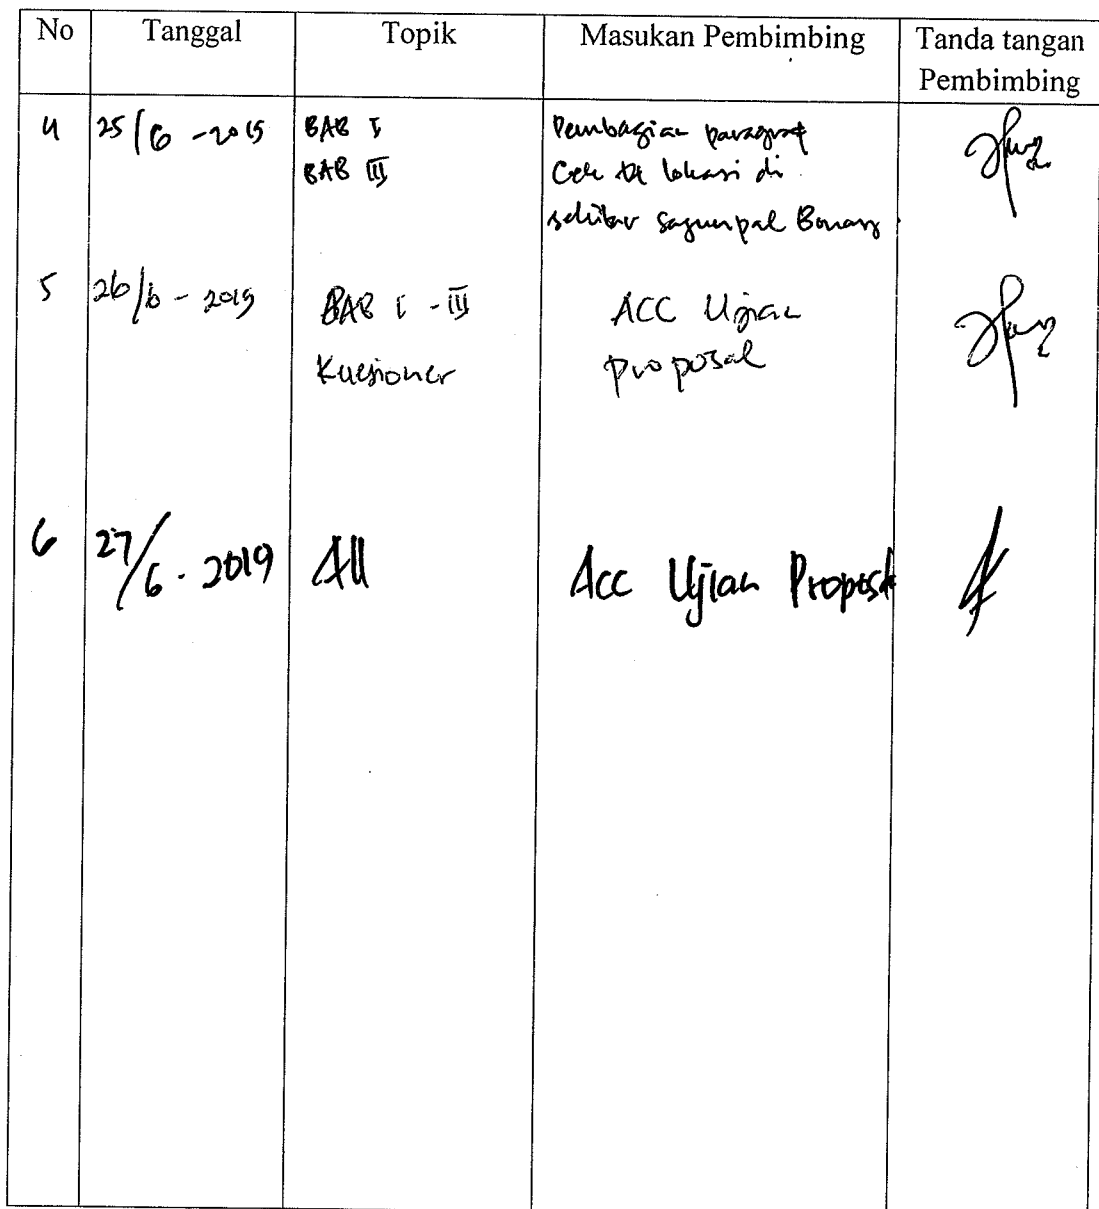 No Tanggal Topik Masukan Pembimbing Tanda tangan
Pembimbing
4 25/6 - 2019 BAB I Pembagian paragraf
BAB III Cek lokasi di
sekitar Sayurpal Bonang
5 26/6 - 2019 BAB I - III ACC Ujian
Kuesioner proposal
6 27/6 - 2019 All Acc Ujian Proposal